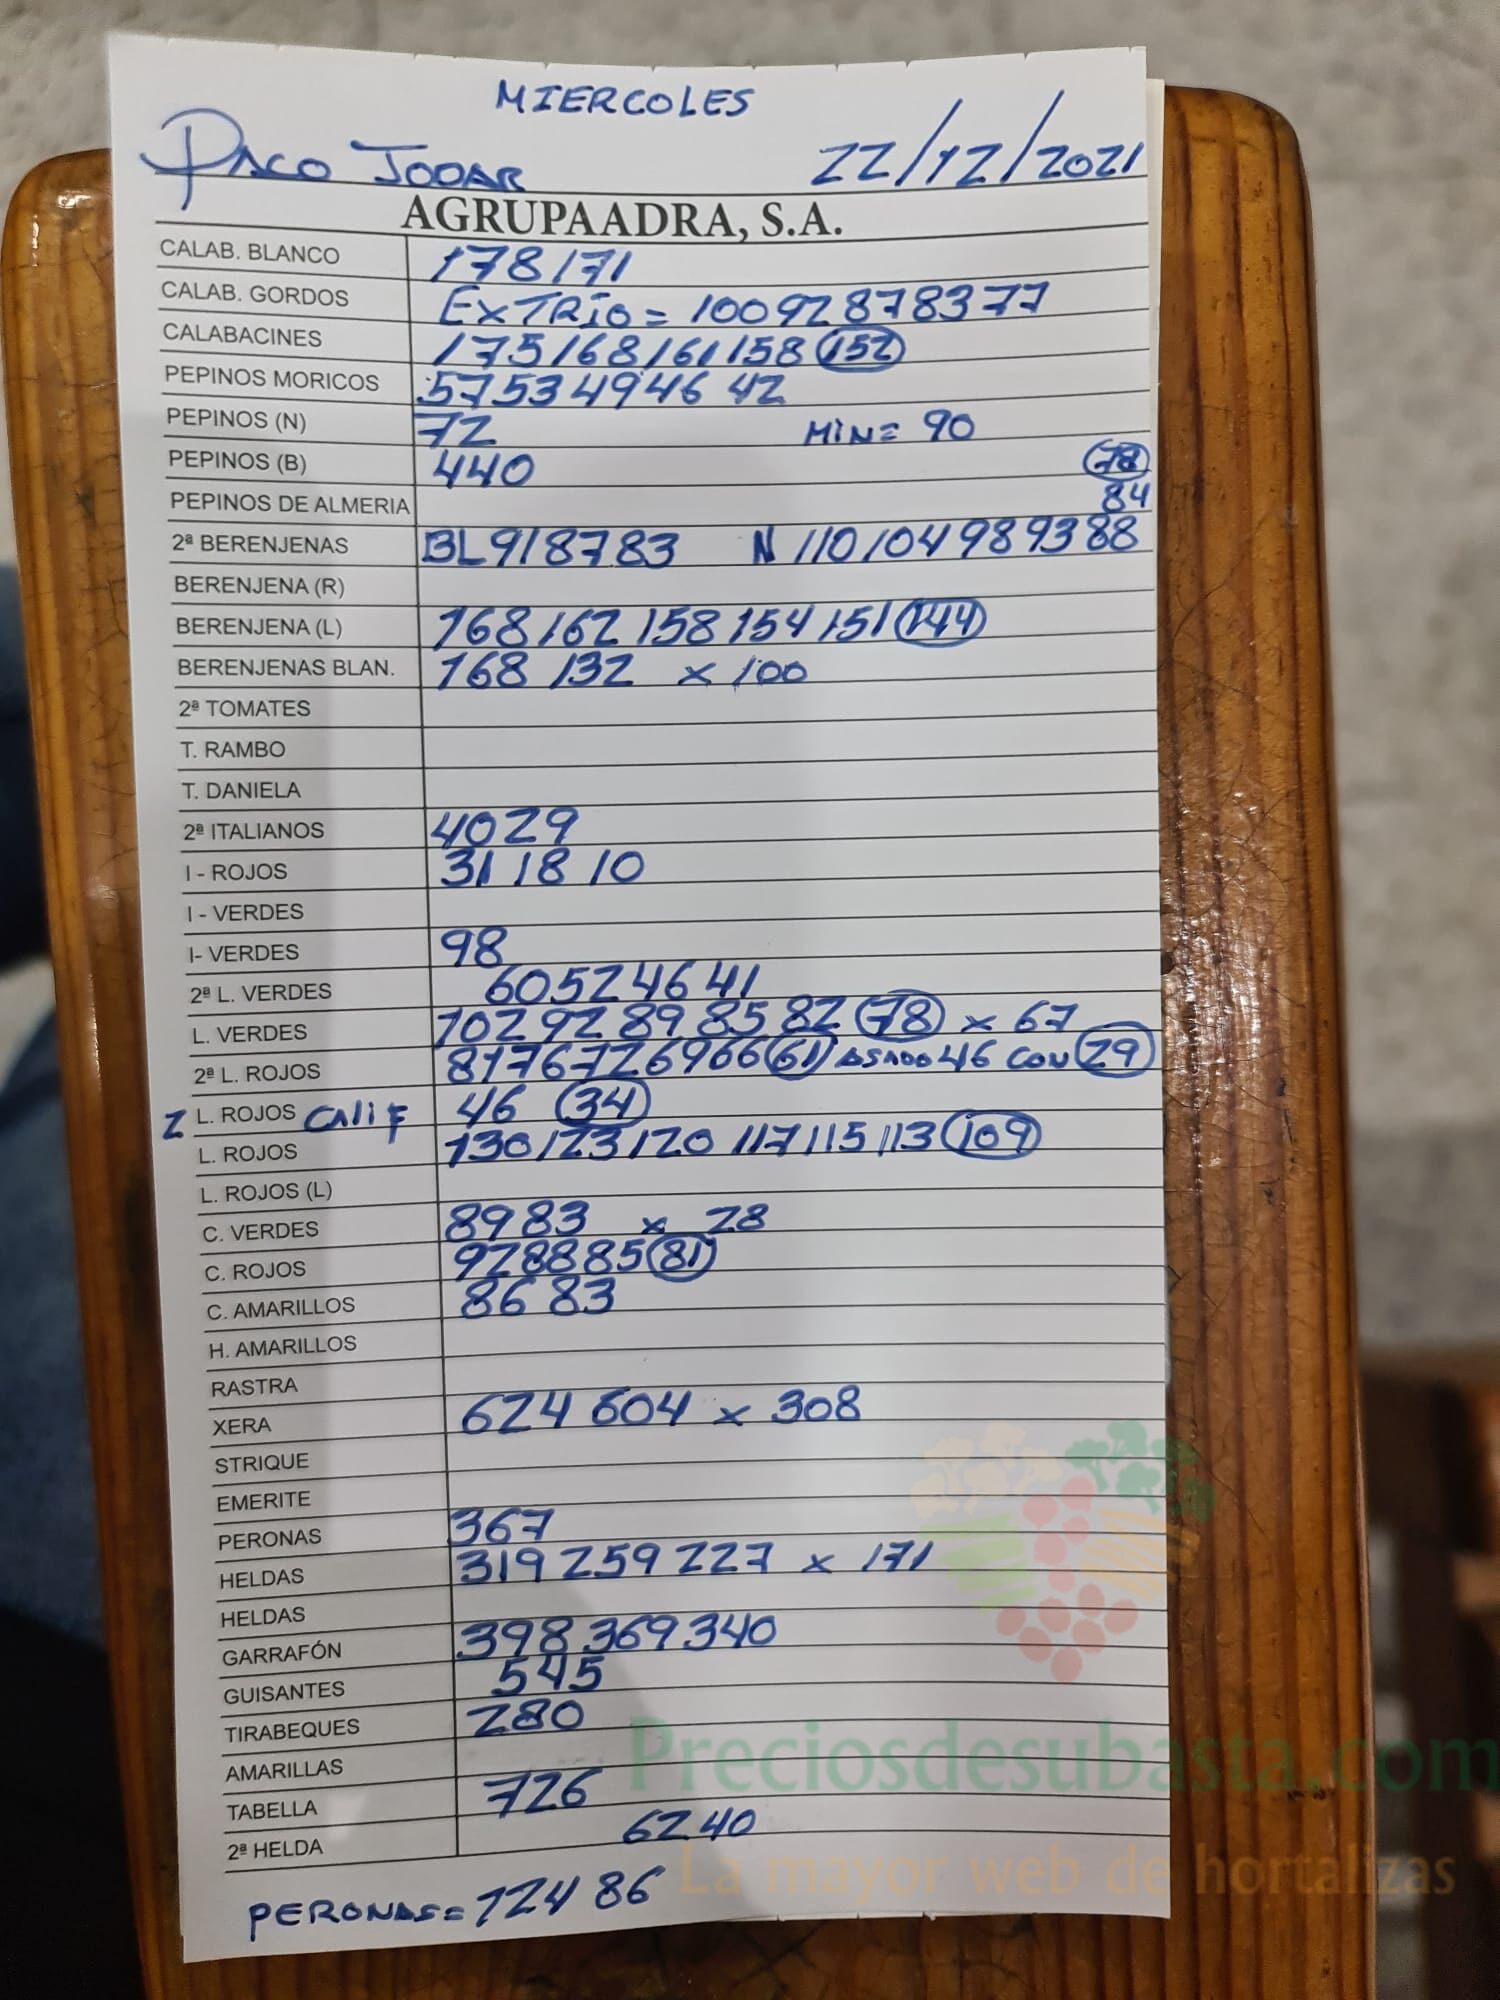 MIERCOLES
PACO JODAR 22/12/2021
AGRUPAADRA, S.A.
CALAB. BLANCO 178 171
CALAB. GORDOS EXTRIO = 100 92 87 83 77
CALABACINES 175 168 161 158 152
PEPINOS MORICOS 57 53 49 46 42
PEPINOS (N) 72 MIN= 90
PEPINOS (B) 440 78
PEPINOS DE ALMERIA 84
2ª BERENJENAS BL 91 87 83 N 110 104 98 93 88
BERENJENA (R)
BERENJENA (L) 168 162 158 154 151 144
BERENJENAS BLAN. 168 132 x 100
2ª TOMATES
T. RAMBO
T. DANIELA
2ª ITALIANOS 40 29
I - ROJOS 31 18 10
I - VERDES
I- VERDES 98
2ª L. VERDES 60 52 46 41
L. VERDES 102 92 89 85 82 78 x 67
2ª L. ROJOS 81 76 72 69 66 61 ASADO 46 CON 29
2 L. ROJOS CALIF 46 34
L. ROJOS 130 123 120 117 115 113 109
L. ROJOS (L)
C. VERDES 89 83 x 28
C. ROJOS 92 88 85 81
C. AMARILLOS 86 83
H. AMARILLOS
RASTRA
XERA 624 604 x 308
STRIQUE
EMERITE
PERONAS 367
HELDAS 319 259 227 x 171
HELDAS
GARRAFÓN 398 369 340
GUISANTES 545
TIRABEQUES 280
AMARILLAS
TABELLA 726
2ª HELDA 62 40
PERONAS= 124 86
Preciosdesubasta.com
La mayor web de hortalizas